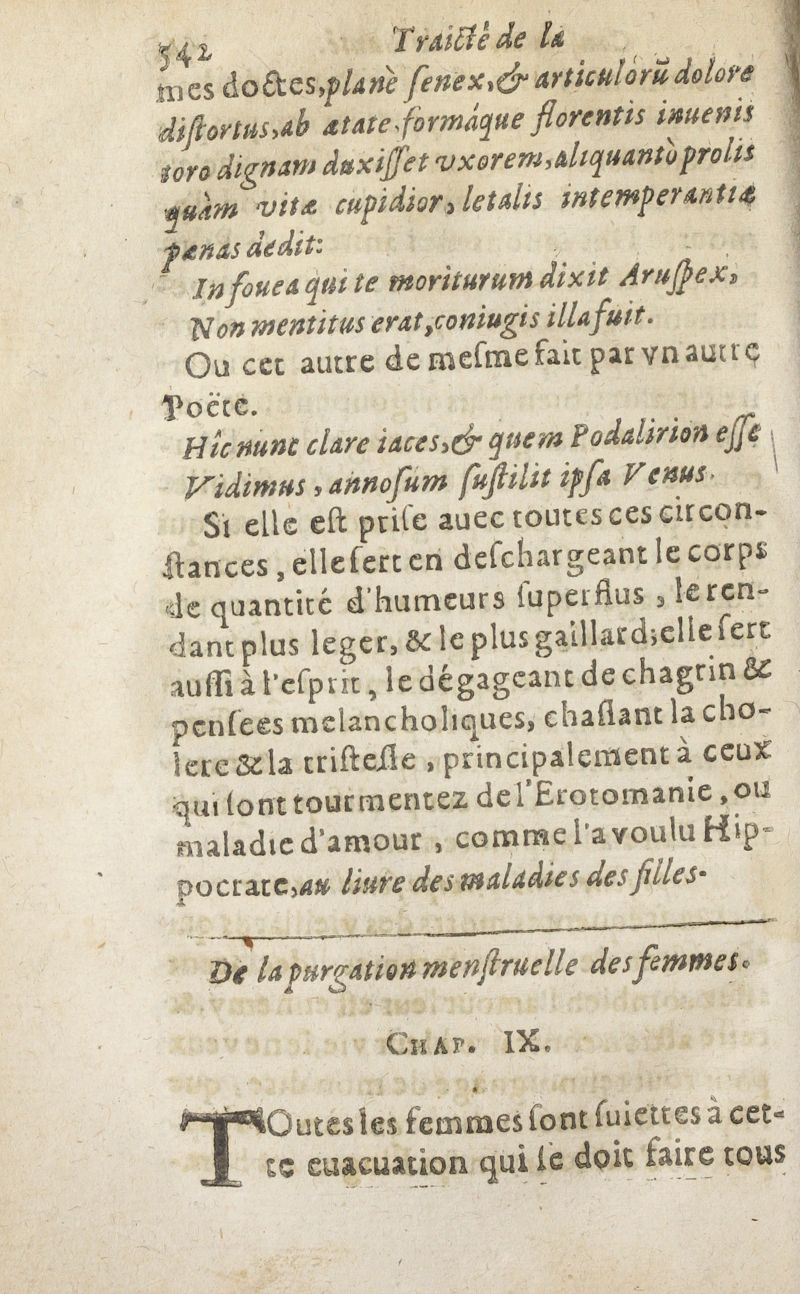 542 Traicté de la
mes doctes, plane ſenex, & articulorū dolore
diſtortus, ab ætate, formáque florentis inuenis
toro dignam duxiſſet vxorem, aliquantò prolis
quàm vitæ cupidior, letalis intemperantiæ
pænas dedit:
In fouea qui te moriturum dixit Aruſpex,
Non mentitus erat, coniugis illa fuit.
Ou cet autre de meſme fait par vn autre
Poëte.
Hîc nunc clare iaces, & quem Podalirion eſſe
Vidimus, annoſum ſuſtilit ipſa Venus.
Si elle eſt priſe auec toutes ces circon-
ſtances, elle ſert en deſchargeant le corps
de quantité d'humeurs ſuperflus, le ren-
dant plus leger, & le plus gaillard; elle ſert
auſſi à l'eſprit, le dégageant de chagrin &
penſees melancholiques, chaſſant la cho-
lere & la triſteſſe, principalement à ceux
qui ſont tourmentez de l'Erotomanie, ou
maladie d'amour, comme l'a voulu Hip-
pocrate, au liure des maladies des filles.
De la purgation menſtruelle des femmes.
CHAP. IX.
TOutes les femmes ſont ſuiettes à cet-
te euacuation qui ſe doit faire tous